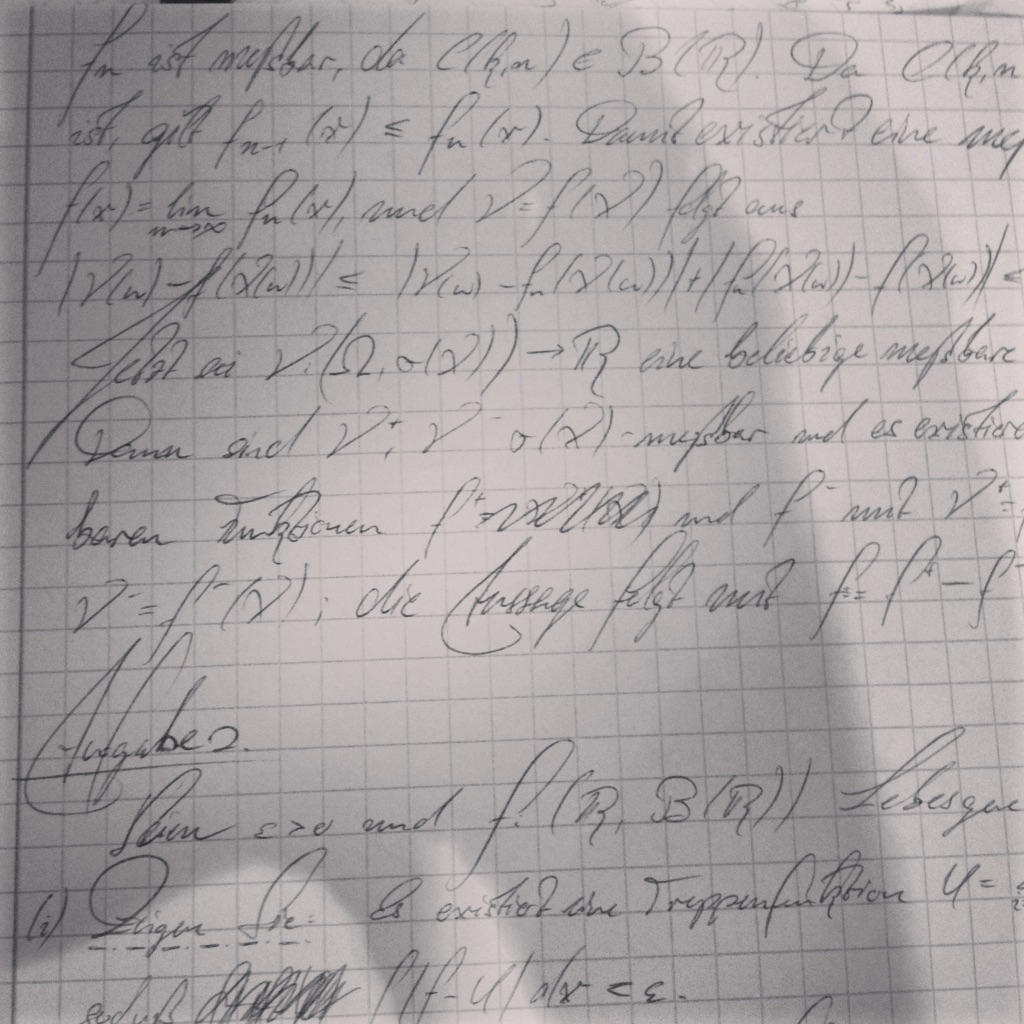 fn ist meßbar, da C(k,n) ∈ B(ℝ). Da C(k,n
ist, gilt fn-1(x) ≤ fn(x). Damit existiert eine meß
f(x) = lim n→∞ fn(x), und Y = f(X) folgt aus
|Y(ω) - f(X(ω))| ≤ |Y(ω) - fn(X(ω))| + |fn(X(ω)) - f(X(ω))| <
Jetzt sei Y: (Ω, σ(X)) → ℝ eine beliebige meßbare
Dann sind Y⁺, Y⁻ σ(X)-meßbar und es existiere
baren Funktionen f⁺ und f⁻ mit Y⁺ =
Y⁻ = f⁻(X); die Aussage folgt mit f := f⁺ - f⁻
Aufgabe 2.
Seien ε>0 und f: (ℝ, B(ℝ)) Lebesgue
(i) Zeigen Sie: Es existiert eine Treppenfunktion φ =
sodaß ∫|f-φ| dx < ε.